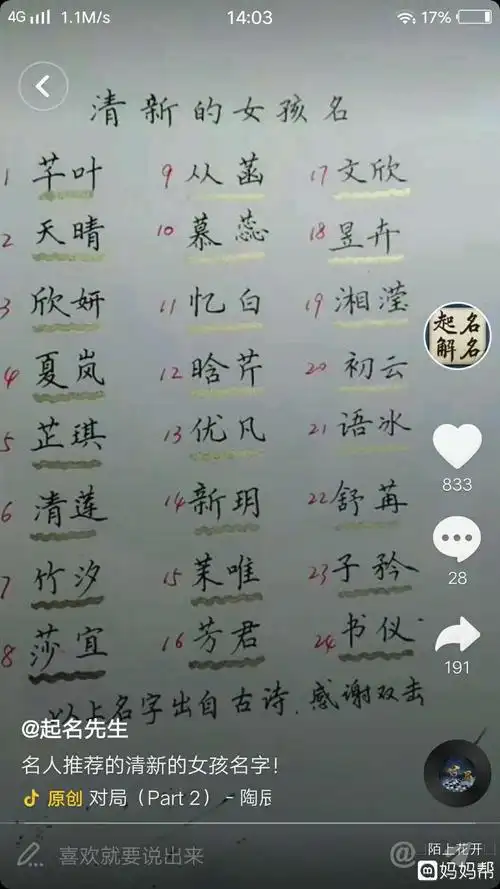 4G 1.1M/s 14:03 17%
清新的女孩名
1 芊叶 9 从菡 17 文欣
2 天晴 10 慕蕊 18 昱卉
3 欣妍 11 忆白 19 湘滢
4 夏岚 12 晗芹 20 初云
5 芷琪 13 优凡 21 语冰
6 清莲 14 新玥 22 舒苒
7 竹汐 15 茉唯 23 子矜
8 莎宜 16 芳君 24 书仪
以上名字出自古诗.感谢双击
起名
解名
833
28
191
@起名先生
名人推荐的清新的女孩名字!
原创 对局（Part 2）- 陶辰
喜欢就要说出来
@
陌上花开
妈妈帮